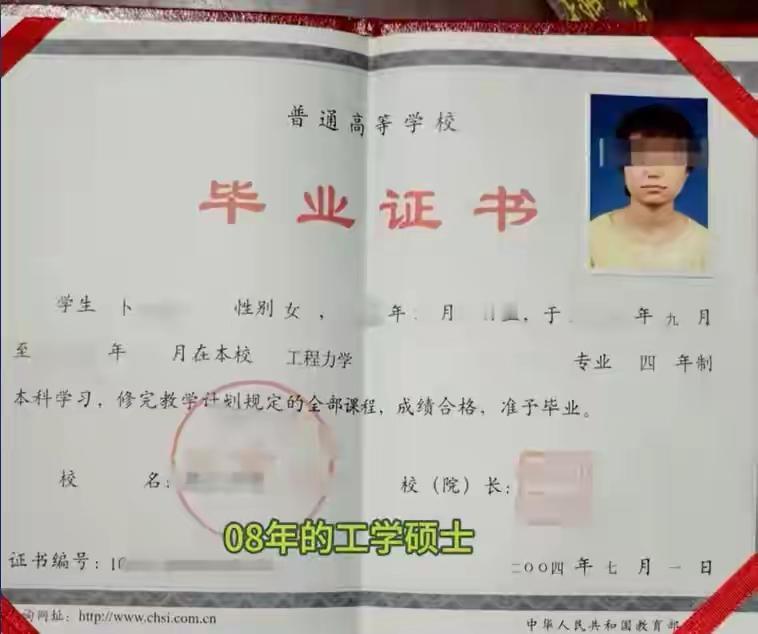 普通高等学校
毕业证书
学生 卜 性别 女 , 年 月 , 于 年 九 月
至 年 月在本校 工程力学 专业 四 年制
本科学习，修完教学计划规定的全部课程，成绩合格，准予毕业。
校 名： 校（院）长：
08年的工学硕士
证书编号：10 二〇〇四 年 七 月 一 日
询网址：http://www.chsi.com.cn 中华人民共和国教育部